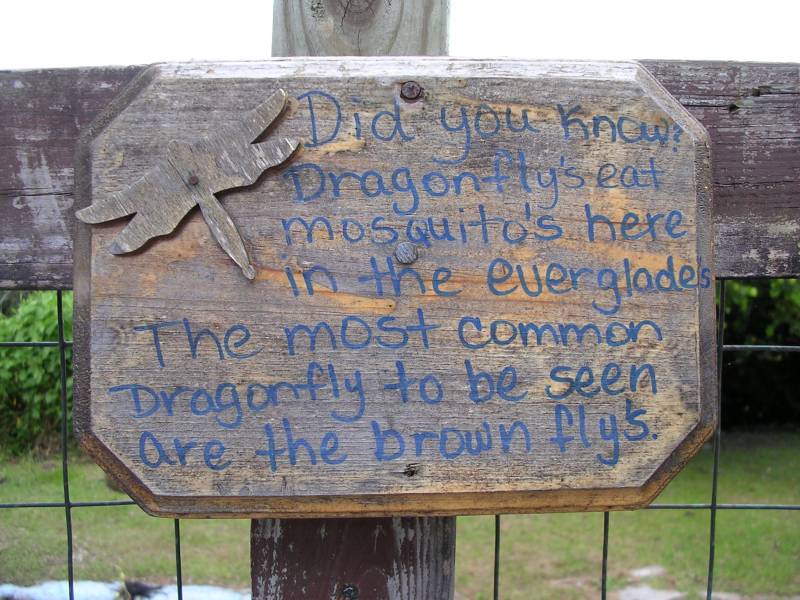 Did you know?
Dragonfly's eat
mosquito's here
in the everglade's
The most common
Dragonfly to be seen
are the brown fly's.